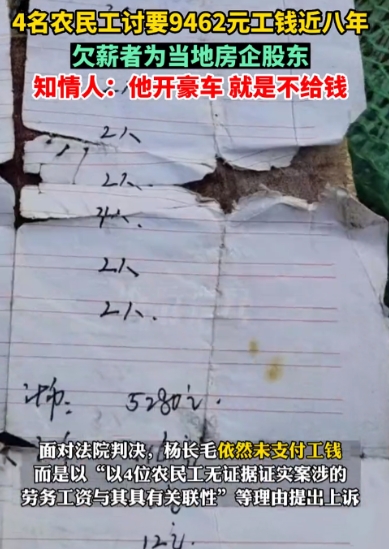 4名农民工讨要9462元工钱近八年
欠薪者为当地房企股东
知情人：他开豪车 就是不给钱
2人
2人
4人
2人
2人
5280元
面对法院判决，杨长毛依然未支付工钱
而是以“以4位农民工无证据证实案涉的
劳务工资与其具有关联性”等理由提出上诉